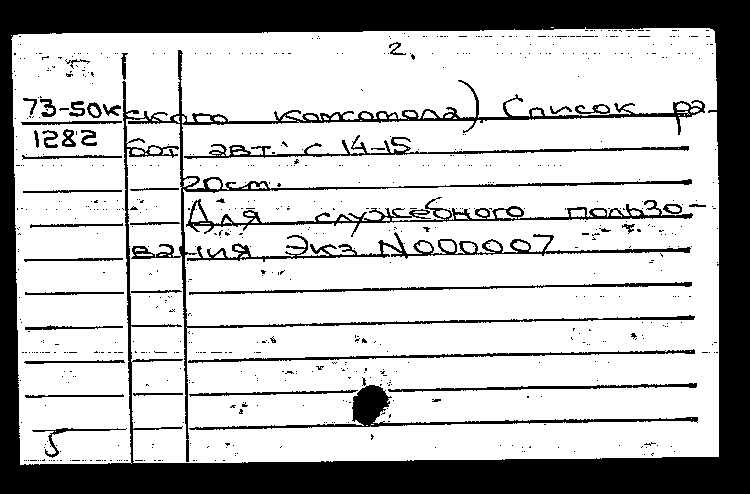 2.
73-50к ского комсомола). Список ра-
1282 бот авт.: с 14-15.
20см.
Для служебного пользо-
вания. Экз N000007
5